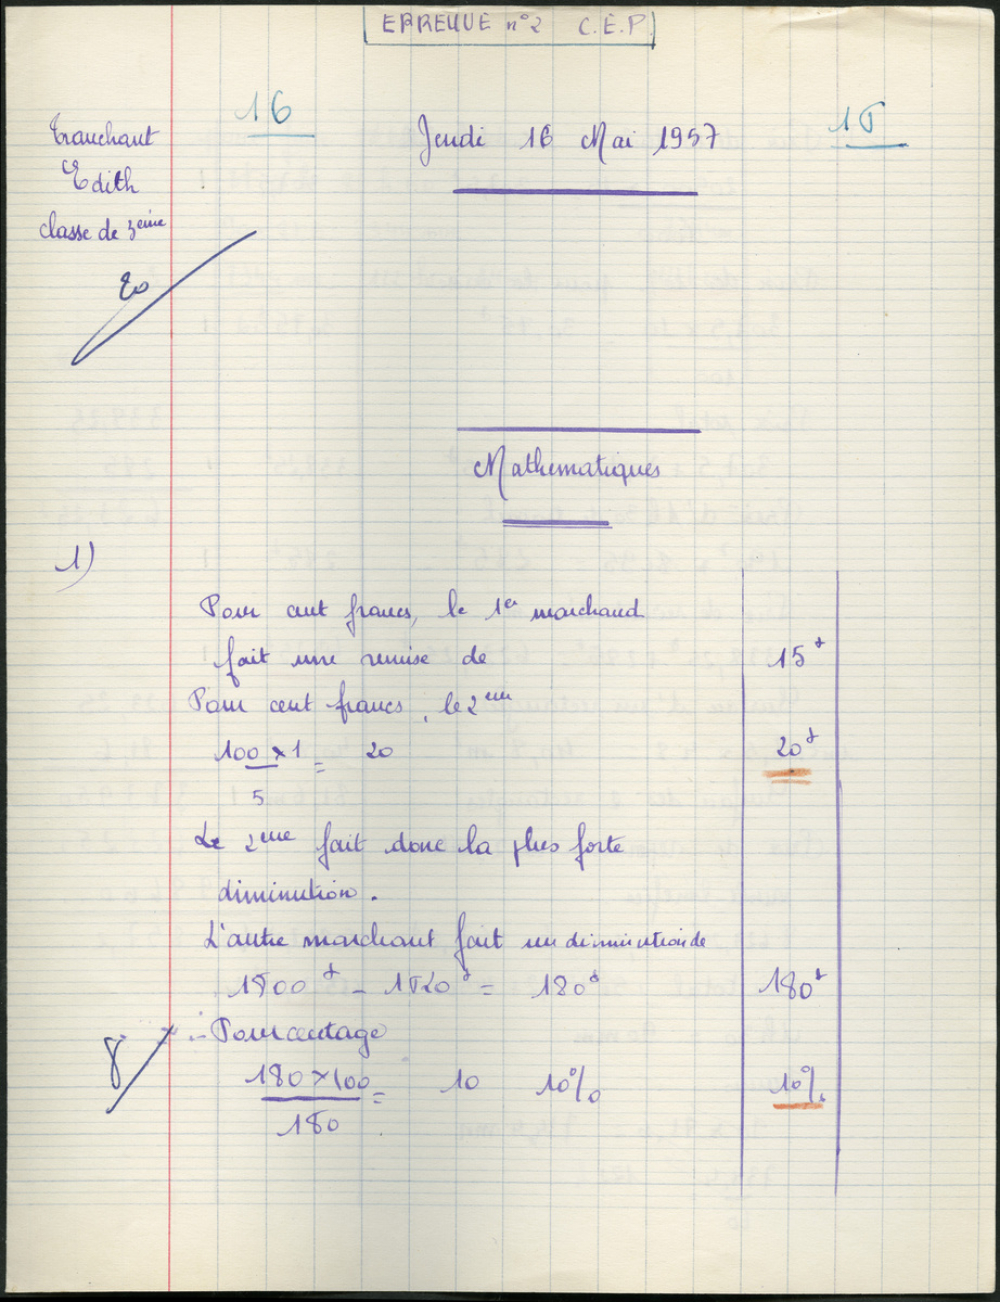 EPREUVE n°2 C.E.P.
16
15
Tranchant
Edith
classe de 3eme
Jeudi 16 Mai 1957
20
Mathematiques
1)
Pour cent francs, le 1er marchand
fait une remise de 15f
Pour cent francs, le 2eme
100 x 1 = 20 20f
5
Le 2eme fait donc la plus forte
diminution.
L'autre marchant fait un diminution de
1800f - 1620f = 180f 180f
Pourcentage
8
180 x 100 = 10 10% 10%
180